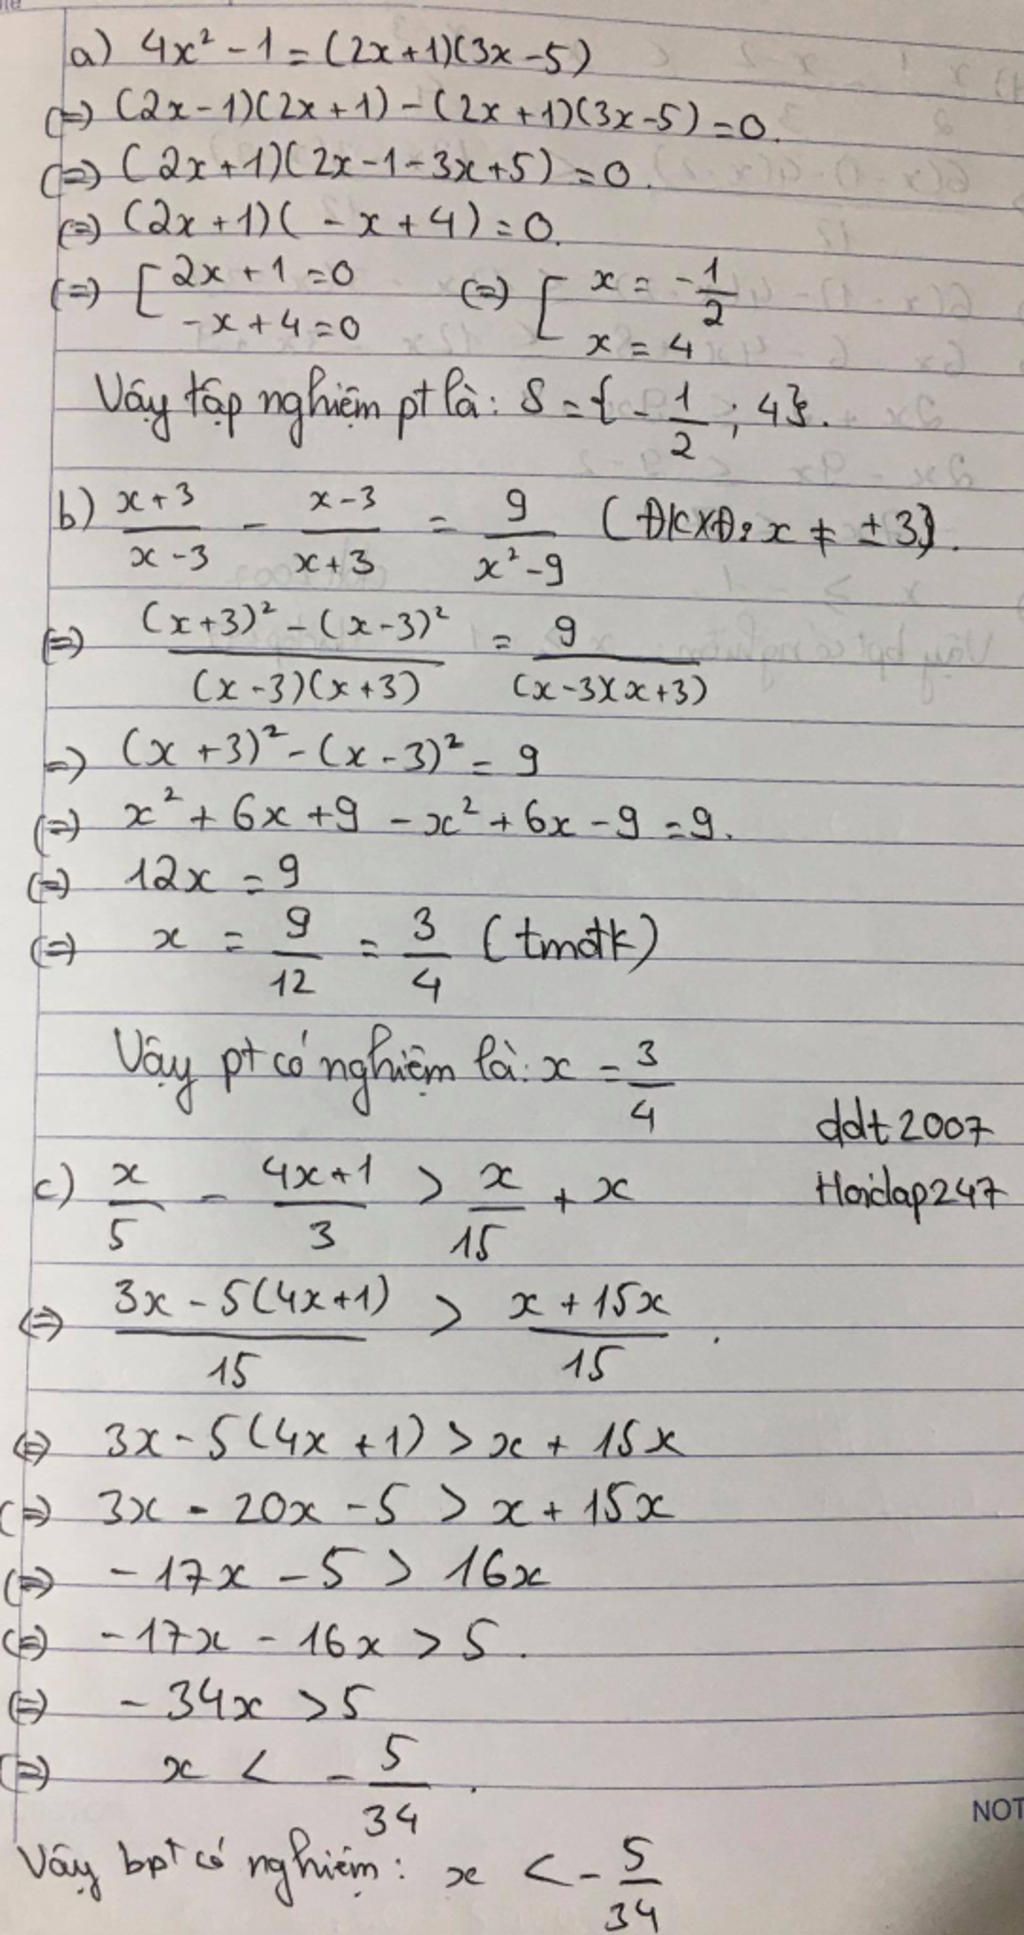 a) 4x² - 1 = (2x+1)(3x-5)
(=) (2x-1)(2x+1) - (2x+1)(3x-5) = 0.
(=) (2x+1)(2x-1-3x+5) = 0.
(=) (2x+1)( -x+4) = 0.
(=) [ 2x+1=0 (=) [ x = -1/2
-x+4=0 x = 4
Vậy tập nghiệm pt là: S = {-1/2; 4}.
b) x+3/x-3 - x-3/x+3 = 9/x²-9 (ĐKXĐ: x ≠ ±3).
(=) (x+3)² - (x-3)²/(x-3)(x+3) = 9/(x-3)(x+3)
=) (x+3)² - (x-3)² = 9
(=) x² + 6x + 9 - x² + 6x - 9 = 9.
(=) 12x = 9
(=) x = 9/12 = 3/4 (tmđk)
Vậy pt có nghiệm là: x = 3/4
ddt2007
Hoidap247
c) x/5 - 4x+1/3 > x/15 + x
(=) 3x - 5(4x+1)/15 > x + 15x/15.
(=) 3x - 5(4x+1) > x + 15x
(=) 3x - 20x - 5 > x + 15x
(=) -17x - 5 > 16x
(=) -17x - 16x > 5.
(=) -34x > 5
(=) x < -5/34.
NOT
Vậy bpt có nghiệm: x < -5/34